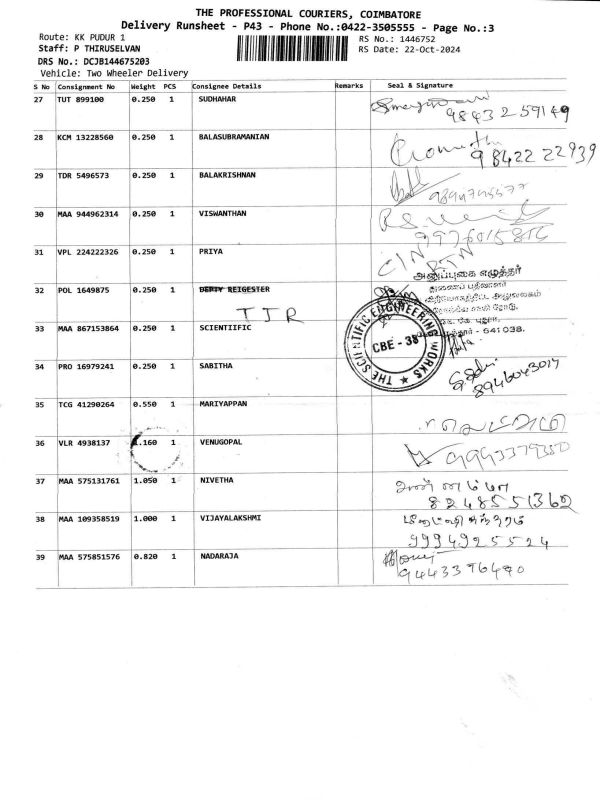 THE PROFESSIONAL COURIERS, COIMBATORE
Delivery Runsheet - P43 - Phone No.:0422-3505555 - Page No.:3
Route: KK PUDUR 1
RS No.: 1446752
Staff: P THIRUSELVAN
RS Date: 22-Oct-2024
DRS No.: DCJB144675203
Vehicle: Two Wheeler Delivery
S No Consignment No Weight PCS Consignee Details Remarks Seal & Signature
27 TUT 899100 0.250 1 SUDHAHAR
98432 59149
28 KCM 13228560 0.250 1 BALASUBRAMANIAN
98422 22939
29 TDR 5496573 0.250 1 BALAKRISHNAN
30 MAA 944962314 0.250 1 VISWANTHAN
31 VPL 224222326 0.250 1 PRIYA
C/N RTN
அனுப்புகை எழுத்தர்
32 POL 1649875 0.250 1 DEPTY REIGESTER
TJR
641 038.
33 MAA 867153864 0.250 1 SCIENTIIFIC
THE SCIENTIFIC ENGINEERING WORKS
CBE - 38
34 PRO 16979241 0.250 1 SABITHA
8946043017
35 TCG 41290264 0.550 1 MARIYAPPAN
36 VLR 4938137 1.160 1 VENUGOPAL
37 MAA 575131761 1.050 1 NIVETHA
8248551362
38 MAA 109358519 1.000 1 VIJAYALAKSHMI
9994925524
39 MAA 575851576 0.820 1 NADARAJA